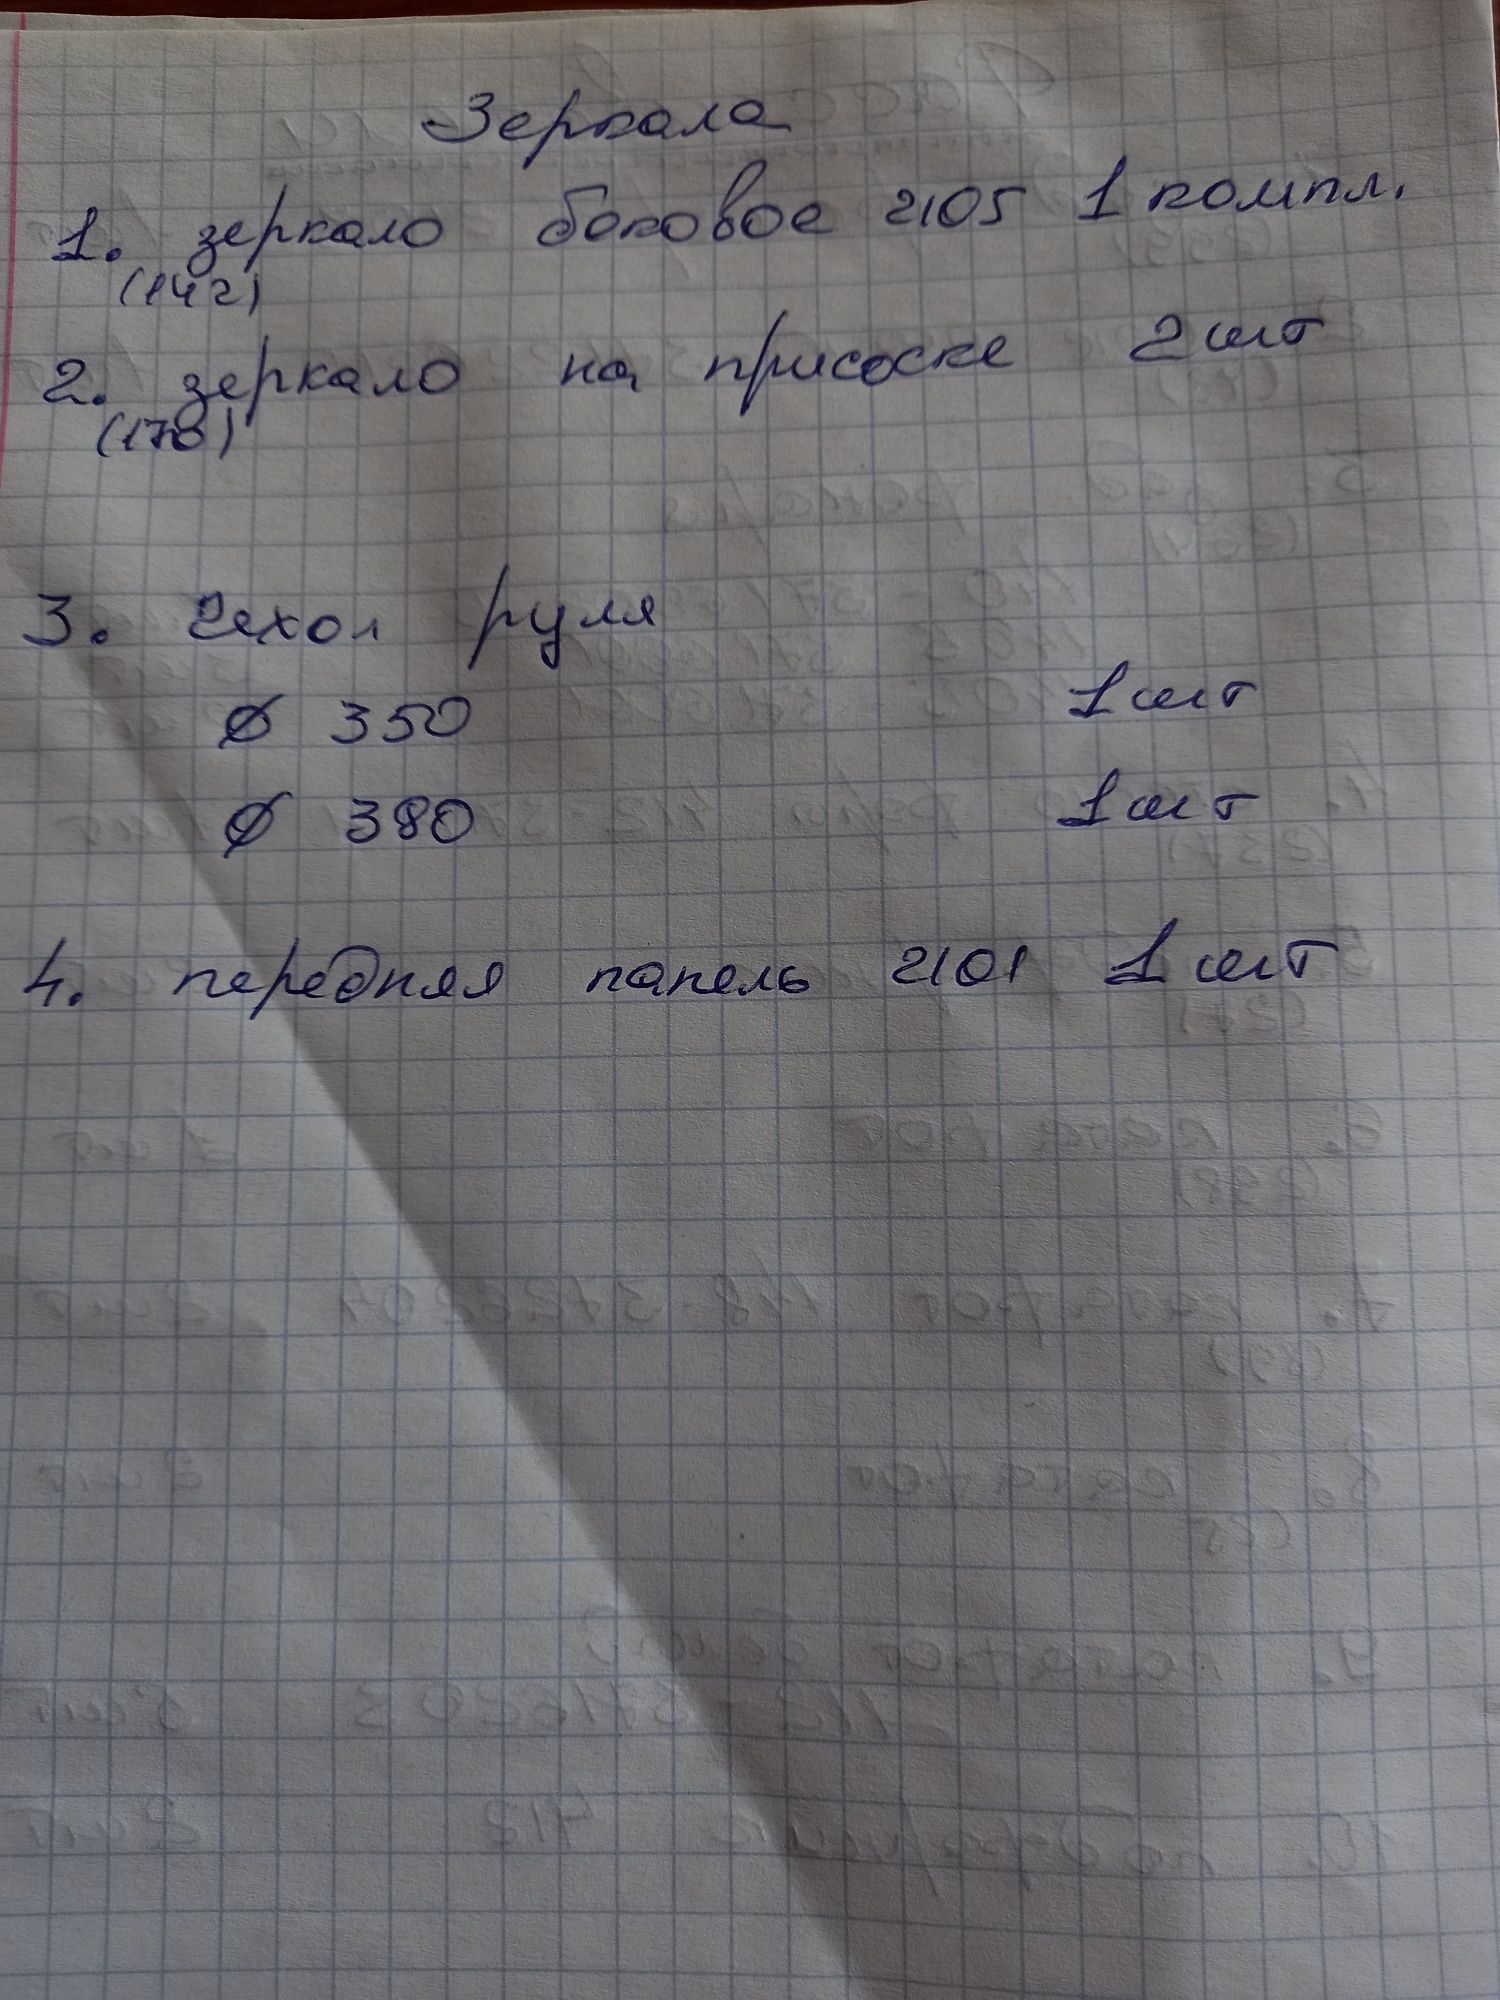 Зеркала
1. зеркало боковое 2105 1 компл.
(142)
2. зеркало на присоске 2 шт
3. Чехол руля
Ø 350 1 шт
Ø 380 1 шт
4. передняя панель 2101 1 шт